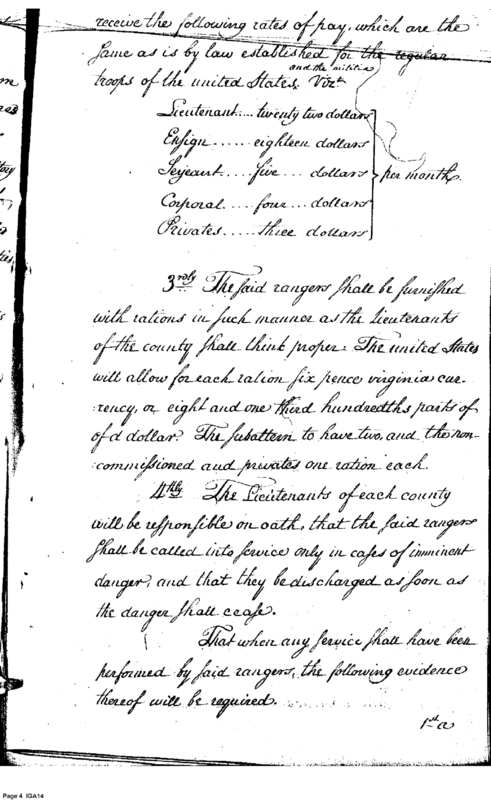 receive the following rates of pay, which are the
same as is by law established for the regular
and the militia
troops of the united States. Vizt
Lieutenant.... twenty two dollars
Ensign ...... eighteen dollars
Serjeant .... five ... dollars
per month.
Corporal .... four ... dollars
Privates ..... three dollars
3rdly The said rangers shall be furnished
with rations in such manner as the Lieutenants
of the county shall think proper. The united States
will allow for each ration six pence virginia cur-
rency, or eight and one third hundredths parts of
of a dollar. The subaltern to have two, and the non-
commissioned and privates one ration each.
4thly The Lieutenants of each county
will be responsible on oath, that the said rangers
shall be called into service only in cases of imminent
danger, and that they be discharged as soon as
the danger shall cease.
That when any service shall have been
performed by said rangers, the following evidence
thereof will be required.
1st a
Page 4 IGA14